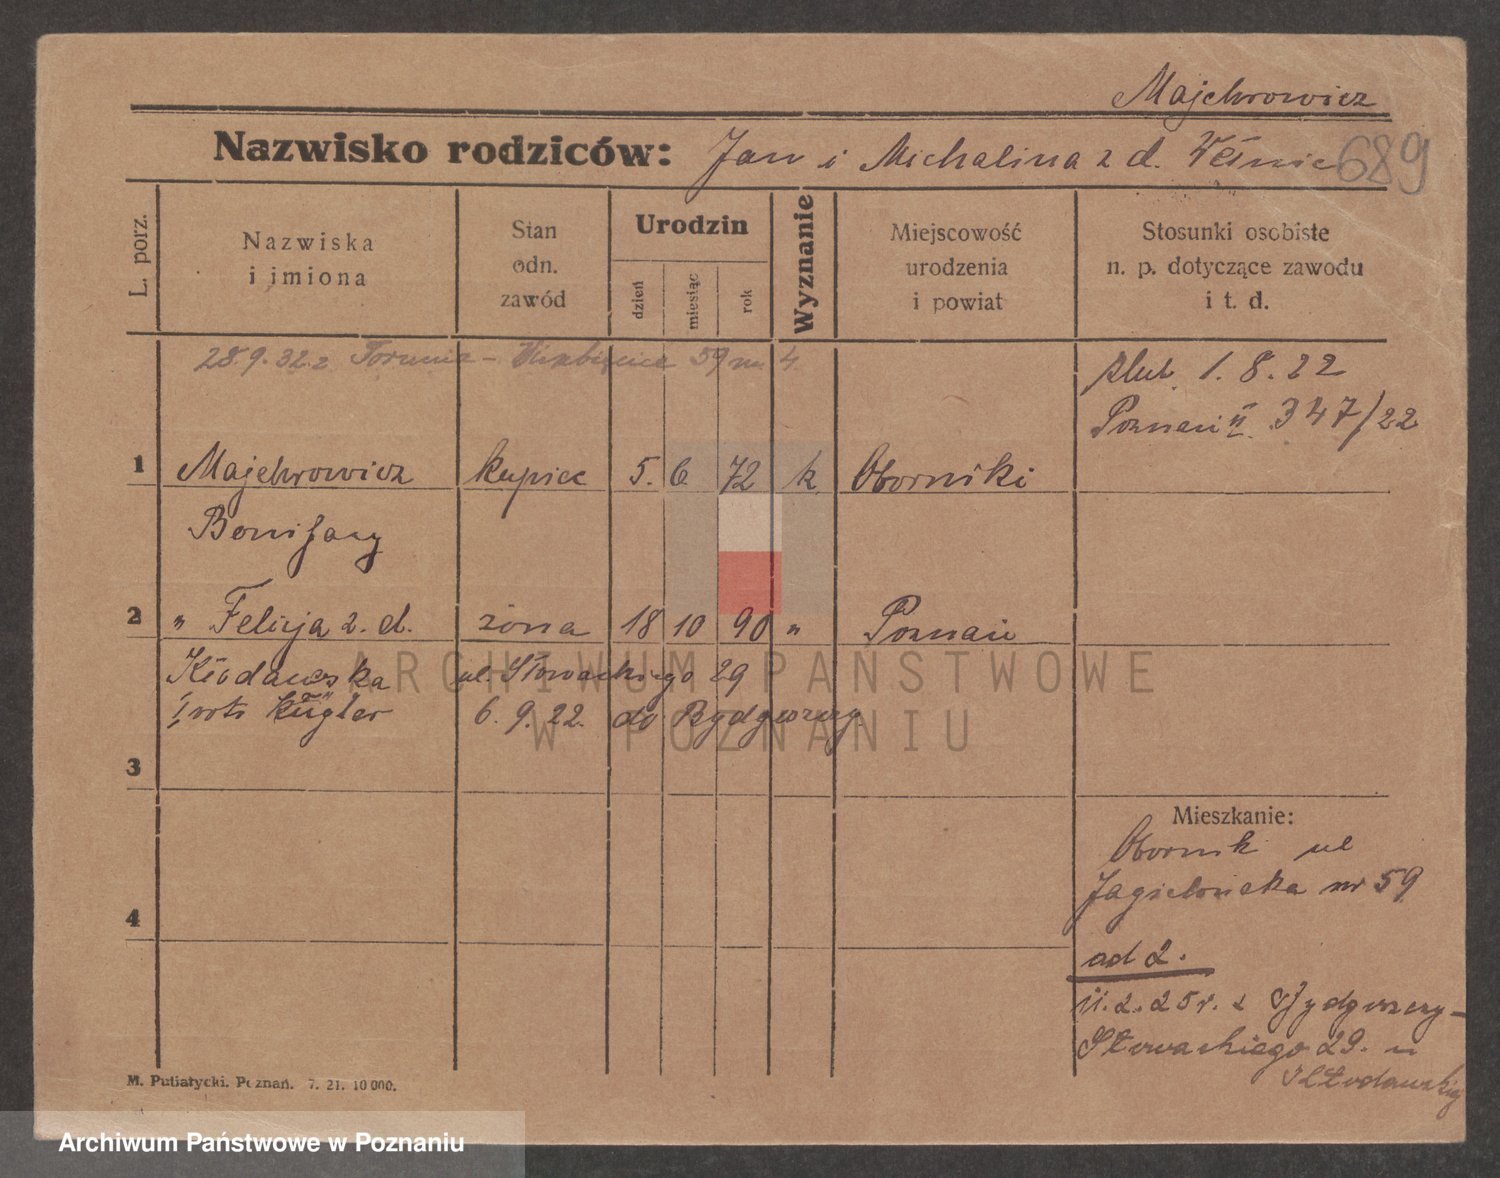 Majchrowicz
Nazwisko rodziców: Jan i Michalina z d. 689
L. porz.
Nazwiska
i imiona
Stan
odn.
zawód
Urodzin
dzień
miesiąc
rok
Wyznanie
Miejscowość
urodzenia
i powiat
Stosunki osobiste
n. p. dotyczące zawodu
i t. d.
28.9.32. z Torunia - 59 m. 4
ślub 1.8.22
Poznań II 347/22
1 Majchrowicz kupiec 5. 6 72 k. Oborniki
Bonifacy
2 " Felicja z. d. żona 18 10 90 " Poznań
Kłodawska ul. Słowackiego 29
I voto Kügler 6.9.22. do Bydgoszczy
3
Mieszkanie:
Obornik ul
Jagielońska nr 59
4
ad 2.
11.2.25 r. z Bydgoszczy -
Słowackiego 29. u
Kłodawskiej
M. Putiatycki. Poznań. 7. 21. 10 000.
ARCHIWUM PAŃSTWOWE
W POZNANIU
Archiwum Państwowe w Poznaniu